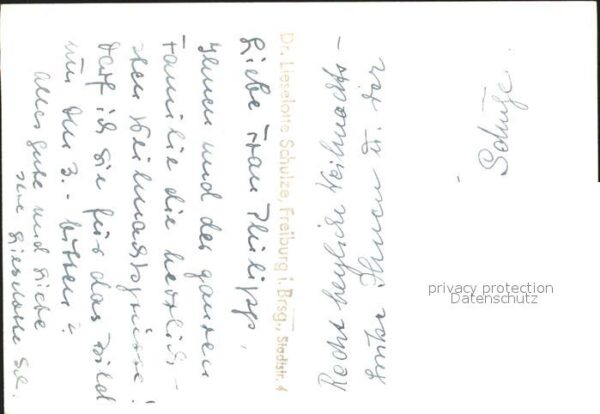 Dr. Lieselotte Schulze, Freiburg i. Brsg., Stadtstr. 4
Liebe Frau Philipp,
Ihnen und der ganzen
Familie die herzlich-
sten Weihnachtsgrüsse!
Darf ich Sie für das Bild
um den 3. - bitten?
Alles Gute und Liebe
Ihre Lieselotte Sch.
Recht herzliche Weihnachts-
Ihnen u. der
Schulze.
privacy protection
Datenschutz